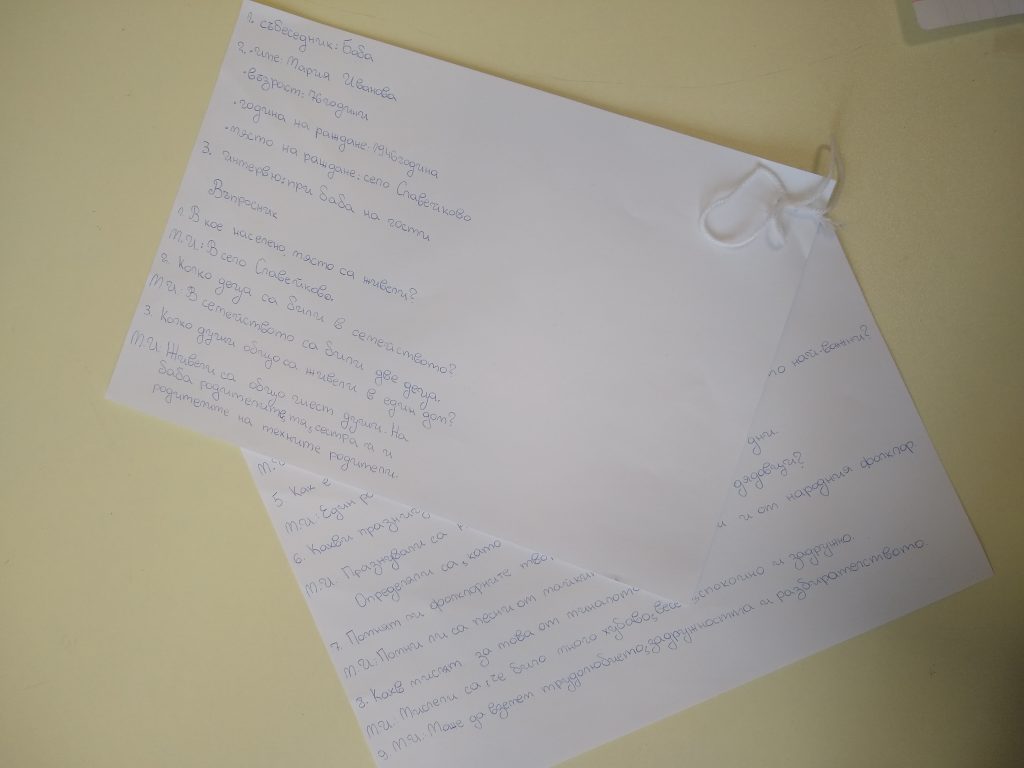 1. събеседник: Баба
2. · име: Мария Иванова
· възраст: 76 години
· година на раждане: 1946 година
· място на раждане: село Славейково
3. интервю: при баба на гости
Въпросник
1. В кое населено място са живели?
М.И.: В село Славейково.
2. Колко деца са били в семейството?
М.И.: В семейството са били две деца.
3. Колко души общо са живели в един дом?
М.И.: Живели са общо шест души. На
баба родителите, тя, сестра ѝ и
родителите на техните родители.
то най-важни?
М.И
5. Как е
дни.
М.И.: Един
6. Какви празници
дядовци?
М.И.: Празнували са
и от народния фолклор
Определяли са, като
7. Помнят ли фолклорните тво
М.И.: Помни ли са песни от майки
8. Какв мислят за това от миналото
спокойно и задружно.
М.И.: Мислели са, че било много хубаво, весе
9. М.И.: Може да вземем трудолюбието, задружността и разбирателството